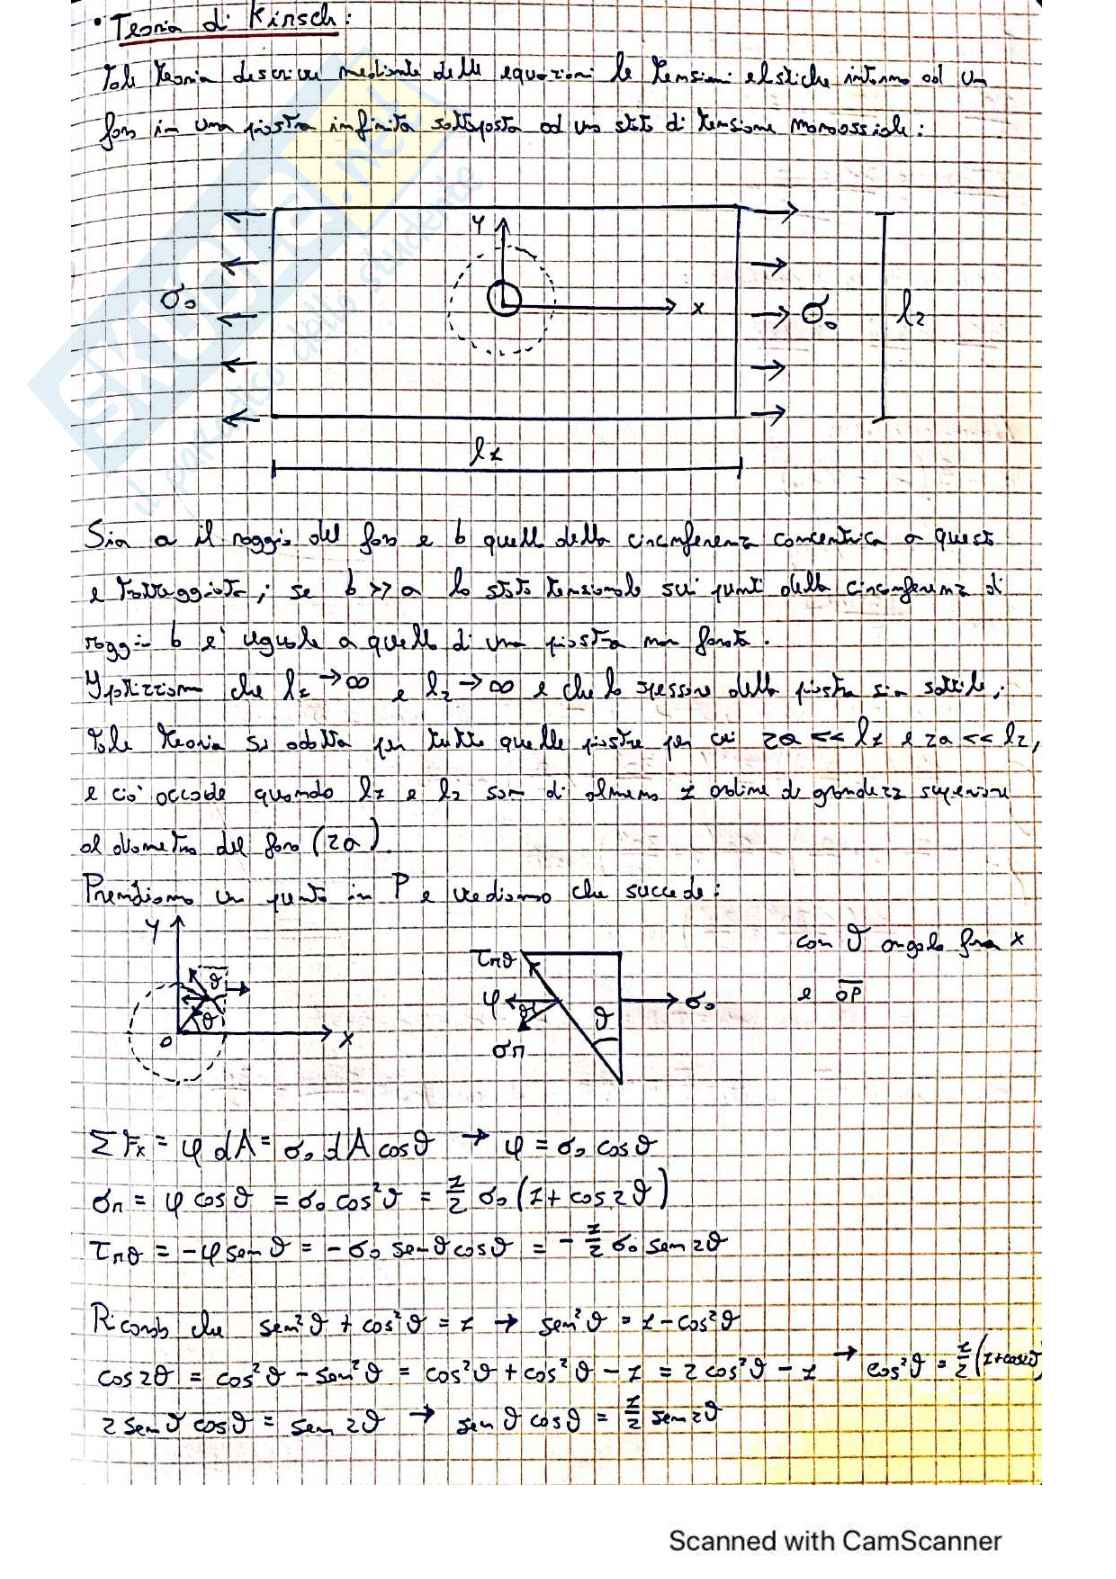 • Teoria di Kirsch:
Tale teoria descrive mediante delle equazioni le tensioni elastiche intorno ad un
foro in una piastra infinita sottoposta ad uno stato di tensione monoassiale:
y
σ₀ x σ₀ l₂
l₁
Sia a il raggio del foro e b quello della circonferenza concentrica a questo
e tratteggiata; se b >> a lo stato tensionale sui punti della circonferenza di
raggio b è uguale a quello di una piastra non forata.
Ipotizziamo che l₁ → ∞ e l₂ → ∞ e che lo spessore della piastra sia sottile,
tale teoria si adotta per tutte quelle piastre per cui 2a << l₁ e 2a << l₂,
e ciò accade quando l₁ e l₂ son di almeno 1 ordine di grandezza superiore
al diametro del foro (2a).
Prendiamo un punto in P e vediamo che succede:
y τrϑ con ϑ angolo fra x
ϑ φ ϑ ϑ σ₀ e OP
ϑ
o x σr
ΣFx = φ dA = σ₀ dA cosϑ → φ = σ₀ cosϑ
σr = φ cosϑ = σ₀ cos²ϑ = 1/2 σ₀ (1 + cos2ϑ)
τrϑ = -φ senϑ = -σ₀ senϑ cosϑ = -1/2 σ₀ sen2ϑ
Ricordo che sen²ϑ + cos²ϑ = 1 → sen²ϑ = 1 - cos²ϑ
cos2ϑ = cos²ϑ - sen²ϑ = cos²ϑ + cos²ϑ - 1 = 2cos²ϑ - 1 → cos²ϑ = 1/2 (1+cos2ϑ)
2 senϑ cosϑ = sen2ϑ → senϑ cosϑ = 1/2 sen2ϑ
Scanned with CamScanner